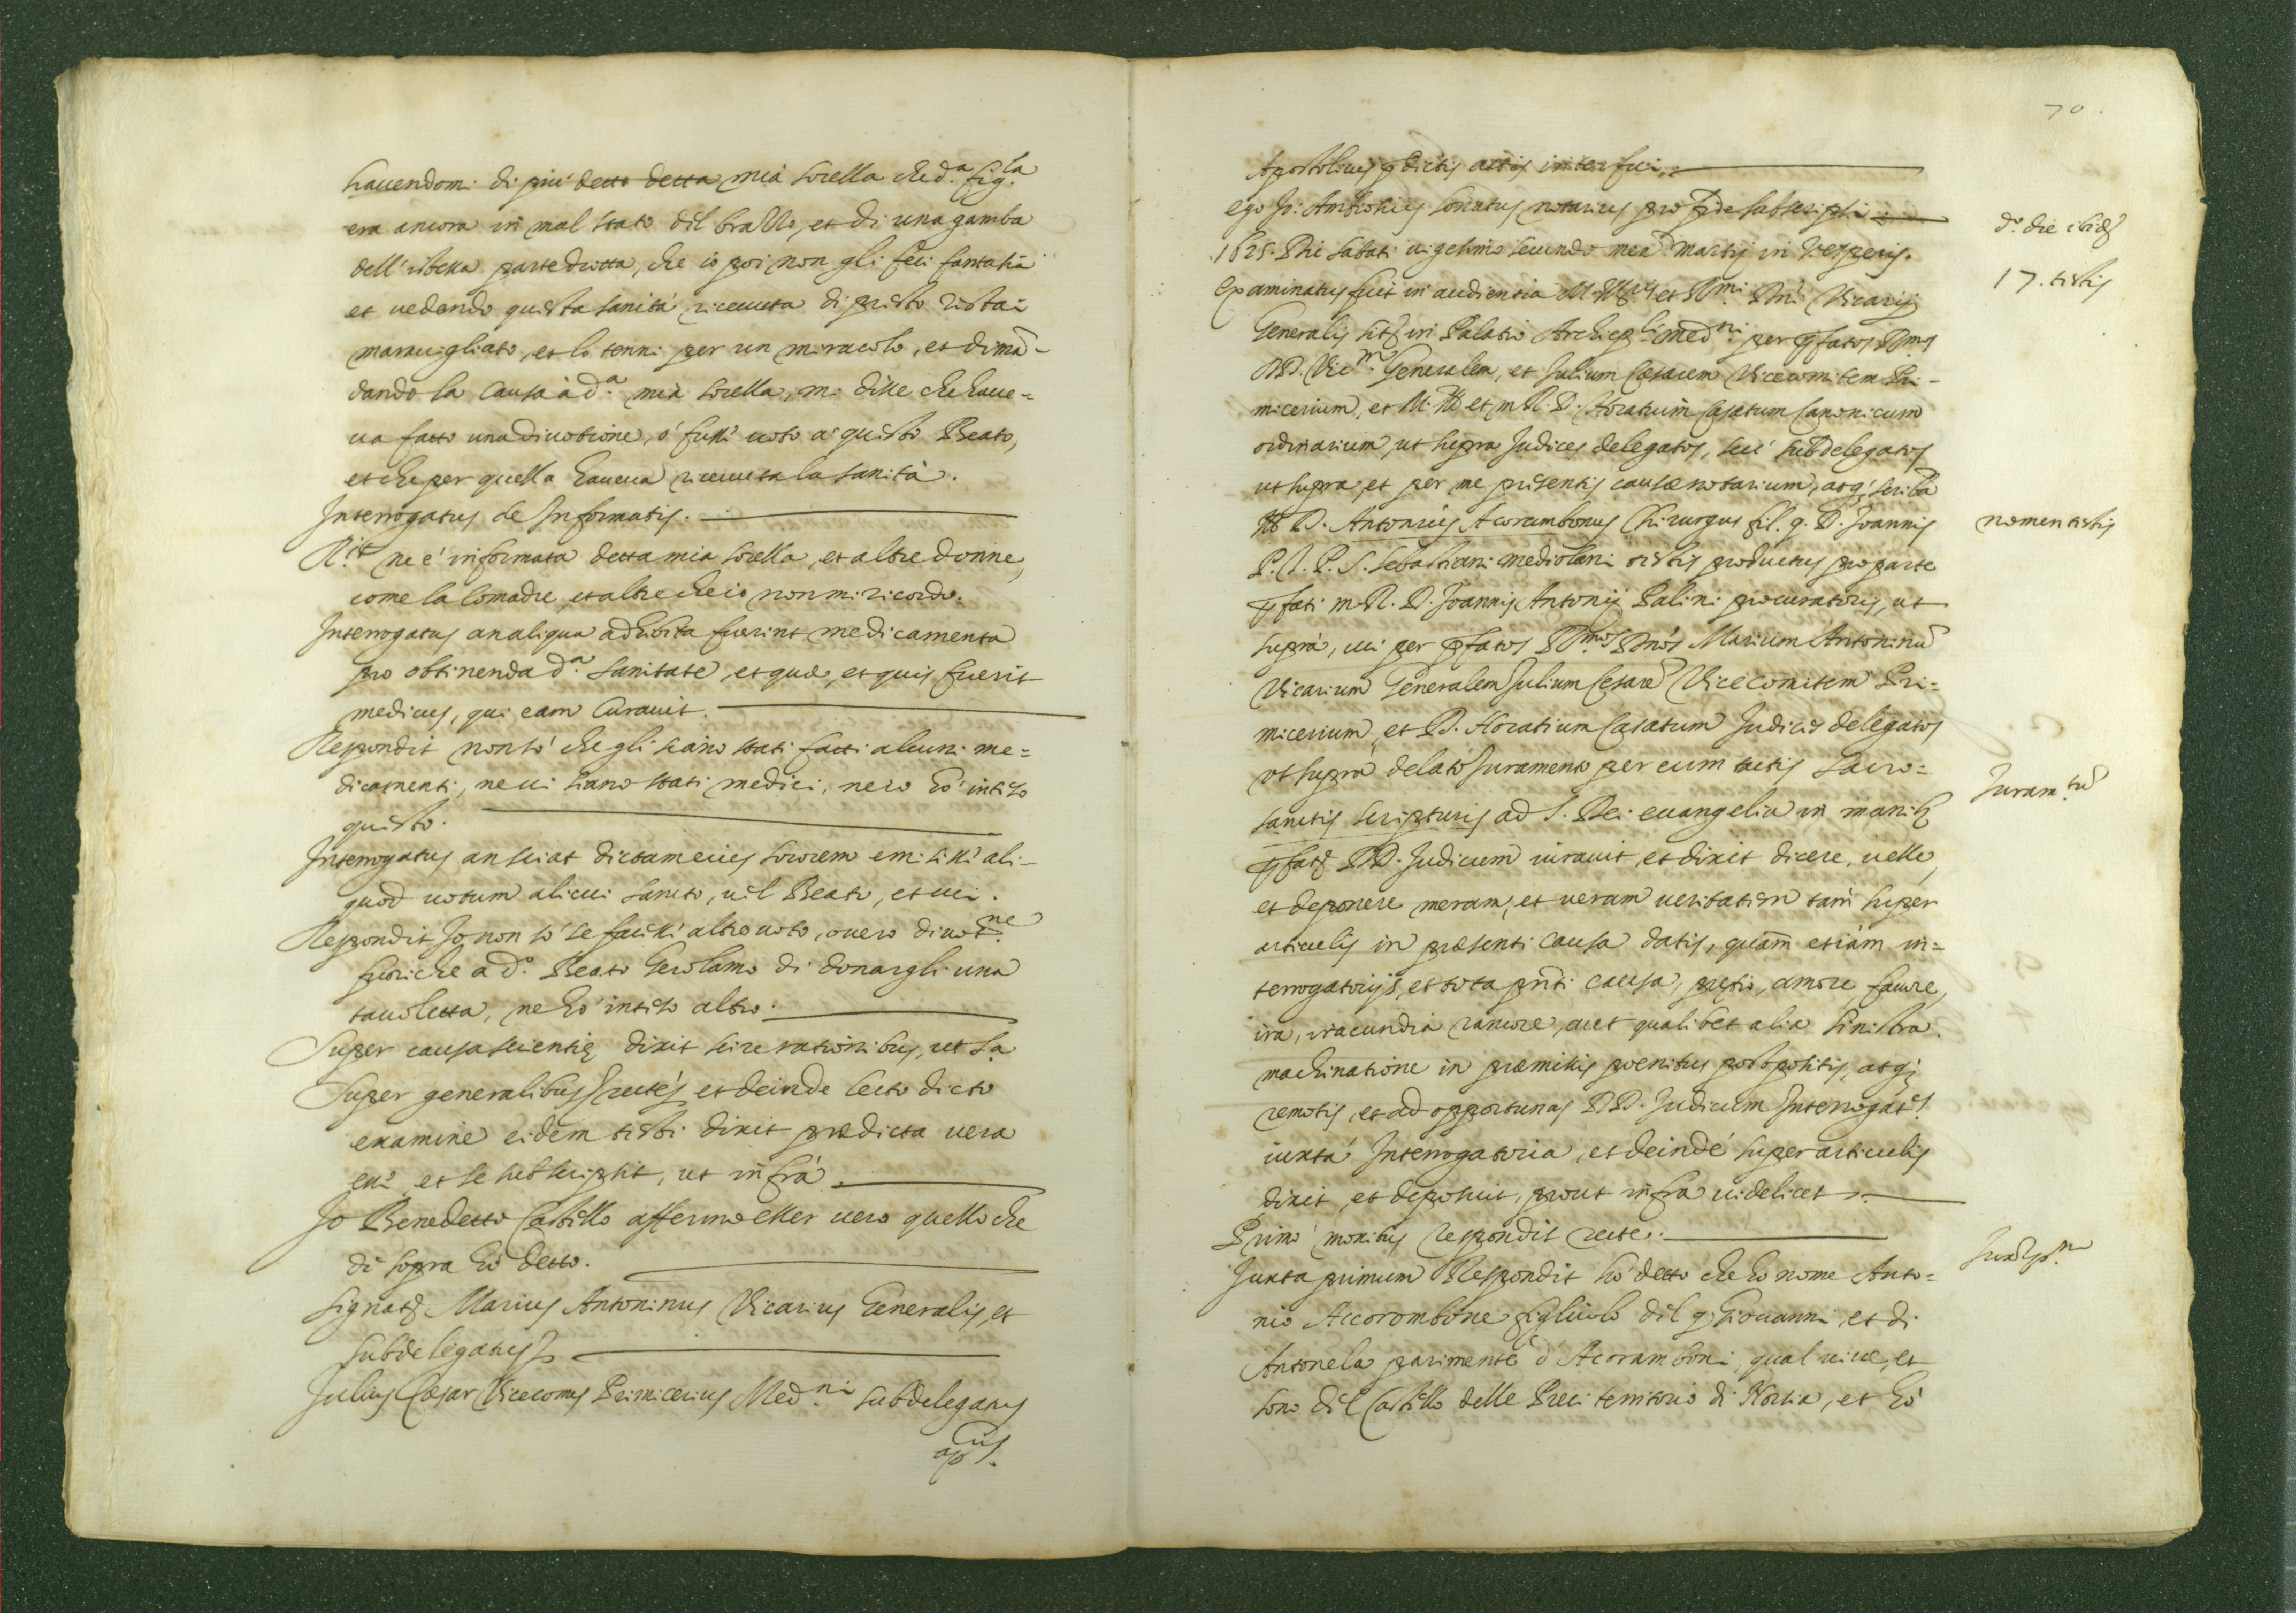 hauendomi di più detto detta mia sorella che d.ª fig.la
era ancora in mal stato del brazzo, et di una gamba
dell'istessa parte dritta, che io poi non gli feci fantasia
et uedendo questa sanità riceuuta di presto restai
marauigliato, et lo tenni per un miracolo, et dimā-
dando la causa à d.ª mia sorella, mi disse che haue=
ua fatto una diuotione, ò fusse uoto à questo Beato,
et che per quella haueua riceuuta la sanità.
Interrogatus de Informatis.
R.it ne è informata detta mia sorella, et altre donne,
come la Comadre, et altre che io non mi ricordo.
Interrogatus an aliqua adhibita fuerint medicamenta
pro obtinenda d.ª sanitate, et quæ, et quis fuerit
medicus, qui eam Curauit.
Respondit non sò che gli siano stati fatti alcuni me=
dicamenti, ne ui siano stati medici, ne io hò inteso
questo.
Interrogatus an sciat dictam eius sororem emisisse ali-
quod uotum alicui sancto, uel Beato, et cui.
Respondit Io non sò se facesse altro uoto, ouero diuot.ne
fuori che a d.º Beato Gerolamo di donargli una
tauoletta, ne hò inteso altro.
Super causa scientię dixit scire rationibus, ut s.ª
Super generalibus recte, et deinde lecto dicto
examine eidem testi dixit prædicta uera
esse, et se subscripsit, ut infrà
Io Benedetto Castello affermo esser uero quello che
di sopra hò detto.
Signat Marius Antoninus Vicarius Generalis, et
subdelegatus
Julius Cæsar Vicecomes Primicerius Med.ni subdelegatus
ap.us
70.
Apostolicus pdictis actis interfui.
ego Jo: Ambrosius sonatus notarius pro fide subscripsi
1625. Die sabati uigesimo secundo men martij in Vesperis.
d.º die ibid
17. testis
Examinatus fuit in audientia M. Ill. et R.mi Dni Vicarij
Generalis sit in Palatio Archiep.li med.ni per pfatos R.mos
DD. Vic.m Generalem, et Julium Cæsarem Vicecomitem Pri-
micerium, et M. Ill et m. R. D. Horatium Casatum Canonicum
ordinarium, ut supra Judices delegatos, seu subdelegatos
ut supra, et per me presentis causæ notarium, atq; scribā
Ill D. Antonius Acorambonus Chirurgus fil. q. D. Joannis
nomen testis
P. N. P. S. Sebastiani mediolani testis productus pro parte
pfati m. R. D. Joannis Antonij Palini procuratoris, ut
suprà, cui per pfatos R.mos Dnos Marium Antoninū
Vicarium Generalem Julium Cesarē Vicecomitem Pri=
micerium, et D. Horatium Casatum Judices delegatos
ut suprà delato Juramento per eum tactis sacro=
Juram.tū
sanctis scripturis ad S. Dei euangelia in manib
pfat DD. Judicum iurauit, et dixit dicere, uelle,
et deponere meram, et ueram ueritatem tam super
articulis in præsenti causa datis, quàm etiàm in=
terrogatorijs, et tota pnti causa, pretio, amore, fauore,
ira, iracundia rancore, aut qualibet alia sinistra
machinatione in præmissis poenitus postpositis, atq;
remotis, et ad opportunas DD. Judicum Interrogat.s
iuxtà Interrogatoria, et deindè super articulis
dixit, et deposuit, prout infra uidelicet
Primò monitus respondit recte.
Juxta primum Respondit hò detto che hò nome Anto=
nio Accorombone figliuolo del q. Giouanni, et di
Antonela parimente d'Acoramboni, qual uiue, et
sono del Castello delle Preci territorio di Norsia, et hò